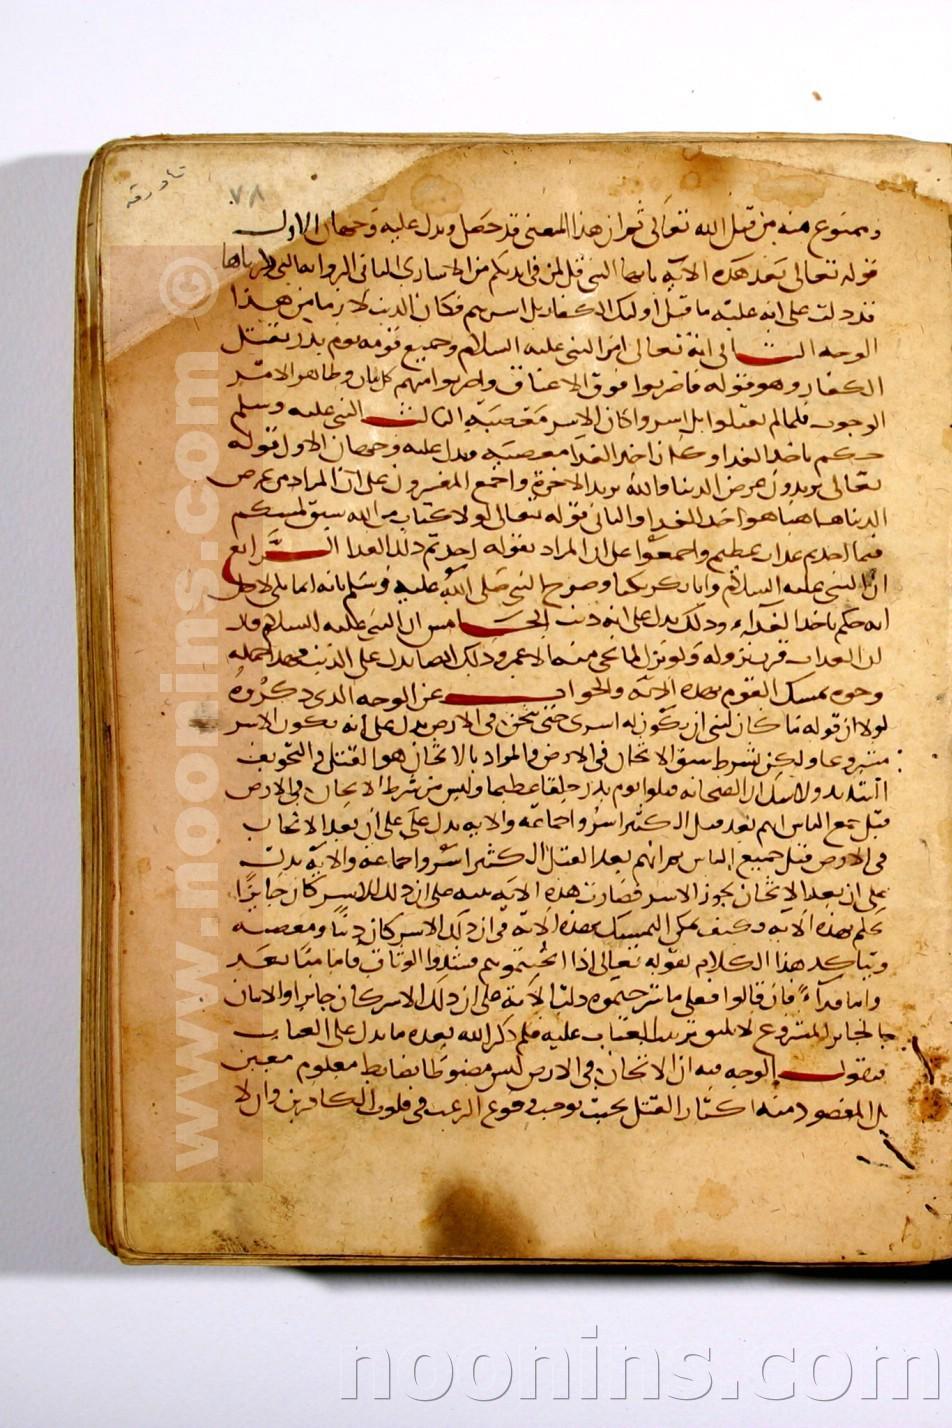 نا ورقه
٧٨
وممنوع منه من قبل الله تعالى ثم ان هذا المعنى قد حصل ويدل عليه وجهان الاول
قوله تعالى بعد هذه الآية يا ايها النبي قل لمن في ايديكم من الاسارى الثاني الرواية التي ذكرناها
قد دلت على انه عليه ما قتل اولئك الكفار بل اسرهم فكان الذنب لازما من هذا
الوجه الثاني انه تعالى امر النبي عليه السلام وجميع قومه يوم بدر بقتل
الكفار وهو قوله فاضربوا فوق الاعناق واضربوا منهم كل بنان وظاهر الامر
الوجوب فلما لم يقتلوا بل اسروا كان الاسر معصية الثالث النبي عليه وسلم
حكم باخذ الفداء وكان اخذ الفداء معصية ويدل عليه وجهان الاول قوله
تعالى تريدون عرض الدنيا والله يريد الاخرة واجمع المفسرون على ان المراد من عرض
الدنيا هاهنا هو اخذ الفداء والثاني قوله تعالى لولا كتاب من الله سبق لمسكم
فيما اخذتم عذاب عظيم واجمعوا على ان المراد بقوله اخذتم ذلك الفداء الرابع
ان النبي عليه السلام وابا بكر بكيا وصرح النبي صلى الله عليه وسلم بانه انما بكى لاجل
انه حكم باخذ الفداء وذلك يدل على انه ذنب الخامس ان النبي عليه السلام قال
ان العذاب قرب نزوله ولو نزل لما نجى منه الا عمر وذلك ايضا يدل على الذنب فهذا جملة
وجوه تمسك القوم بهذه الآية والجواب عن الوجه الذي ذكروه
اولا ان قوله ما كان لنبي ان يكون له اسرى حتى يثخن في الارض يدل على انه يكون الاسر
مشروعا ولكن بشرط سبق الاثخان في الارض والمراد بالاثخان هو القتل والتخويف
الشديد ولا شك ان الصحابة قتلوا يوم بدر خلقا عظيما وليس من شرط الاثخان في الارض
قتل جميع الناس ثم انهم بعد قتل الكثير اسروا جماعة والآية تدل على ان بعد الاثخان
في الارض قتل جميع الناس ثم انهم بعد القتل الكثير اسروا جماعة والآية تدل
على ان بعد الاثخان يجوز الاسر فصارت هذه الآية بينة على ان ذلك الاسر كان جايزا
بحكم هذه الآية وكيف يمكن التمسك بهذه الآية في ان ذلك الاسر كان ذنبا ومعصية
ويتاكد هذا الكلام بقوله تعالى اذا اثخنتموهم فشدوا الوثاق فاما منا بعد
واما فداء فان قالوا فعلى ما شرحتموه دلت الآية على ان ذلك الاسر كان جايزا والاتيان
بالجايز المشروع لا يليق ترتيب العقاب عليه فلم ذكر الله بعده ما يدل على العقاب
فنقول الوجه فيه ان الاثخان في الارض ليس مضبوطا بضابط معلوم معين
بل المقصود منه اكثار القتل بحيث يوجب وقوع الرعب في قلوب الكافرين وان لا
www.noonins.com ©
noonins.com